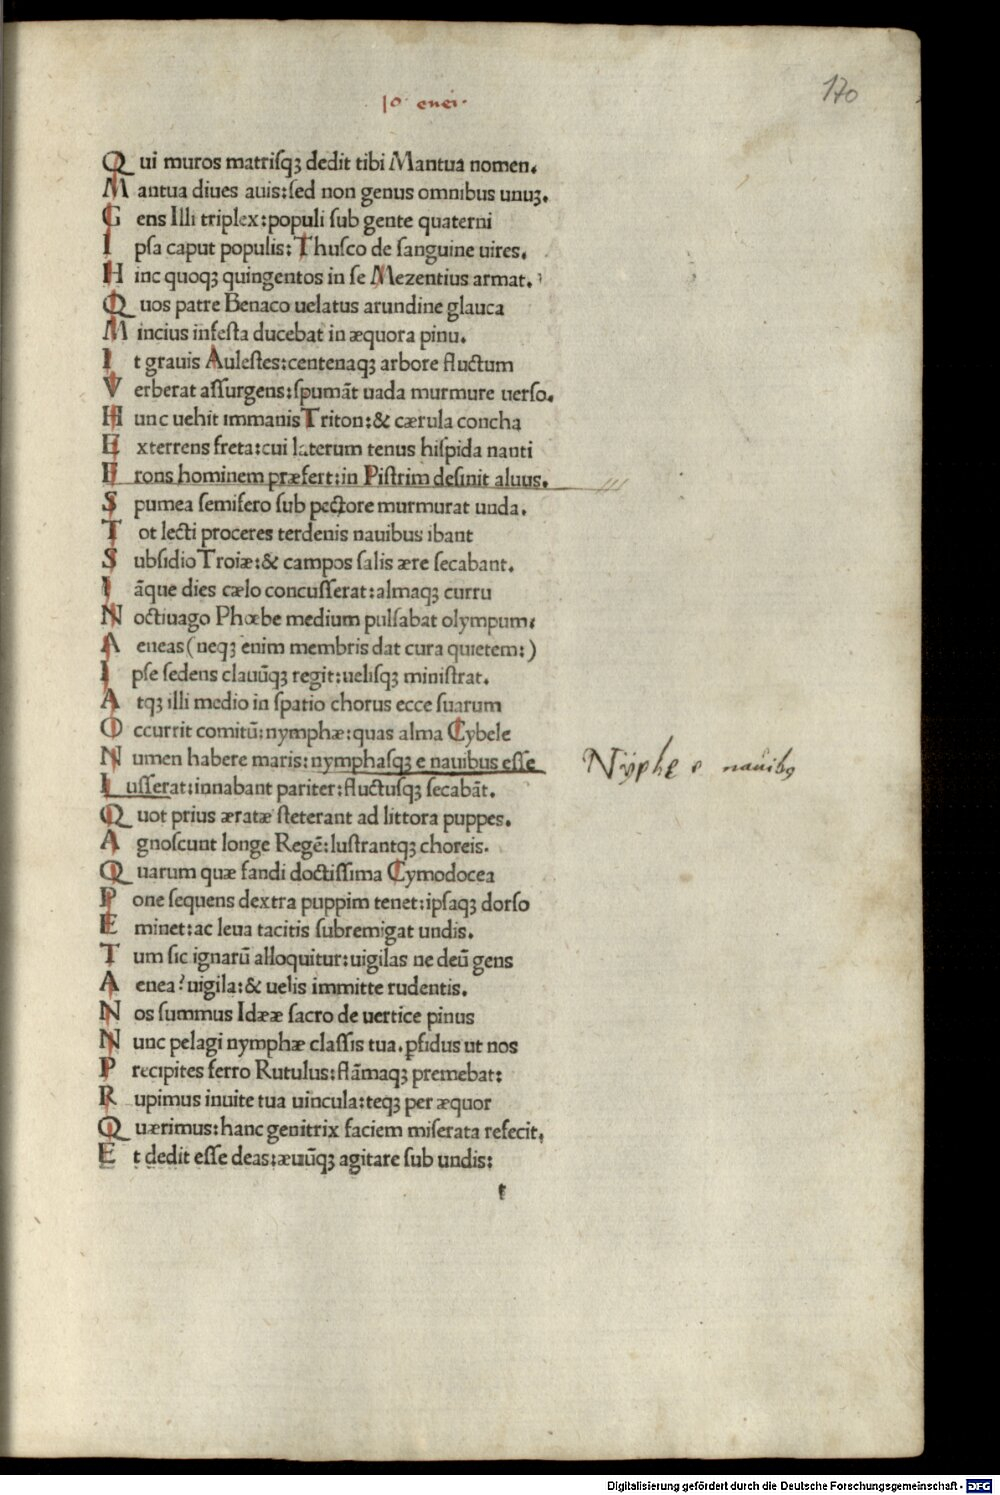 10 enei.
170
Qui muros matrisqꝫ dedit tibi Mantua nomen.
Mantua diues auis:sed non genus omnibus unuꝫ.
Gens Illi triplex:populi sub gente quaterni
Ipsa caput populis: Thusco de sanguine uires.
Hinc quoqꝫ quingentos in se Mezentius armat.
Quos patre Benaco uelatus arundine glauca
Mincius infesta ducebat in æquora pinu.
It grauis Aulestes:centenaqꝫ arbore fluctum
Verberat assurgens:spumãt uada murmure uerso.
Hunc uehit immanis Triton:& cærula concha
Exterrens freta:cui laterum tenus hispida nanti
Frons hominem præfert:in Pistrim desinit aluus.
Spumea semifero sub pectore murmurat unda.
Tot lecti proceres terdenis nauibus ibant
Subsidio Troiæ:& campos salis ære secabant.
Iãque dies cælo concusserat:almaqꝫ curru
Noctiuago Phœbe medium pulsabat olympum:
Aeneas (neqꝫ enim membris dat cura quietem:)
Ipse sedens clauũqꝫ regit:uelisqꝫ ministrat.
Atqꝫ illi medio in spatio chorus ecce suarum
Occurrit comitũ:nymphæ:quas alma Cybele
Numen habere maris:nymphasqꝫ e nauibus esse
Iusserat:innabant pariter:fluctusqꝫ secabãt.
Quot prius æratæ steterant ad littora puppes.
Agnoscunt longe Regẽ:lustrantqꝫ choreis.
Quarum quæ fandi doctissima Cymodocea
Pone sequens dextra puppim tenet:ipsaqꝫ dorso
Eminet:ac leua tacitis subremigat undis.
Tum sic ignarũ alloquitur:uigilas ne deũ gens
Aenea?uigila:& uelis immitte rudentis.
Nos summus Idææ sacro de uertice pinus
Nunc pelagi nymphæ classis tua.pfidus ut nos
Præcipites ferro Rutulus:flãmaqꝫ premebat:
Rupimus inuite tua uincula:teqꝫ per æquor
Quærimus:hanc genitrix faciem miserata refecit.
Et dedit esse deas:æuũqꝫ agitare sub undis:
Nÿphę e nauibꝫ
Digitalisierung gefördert durch die Deutsche Forschungsgemeinschaft - DFG